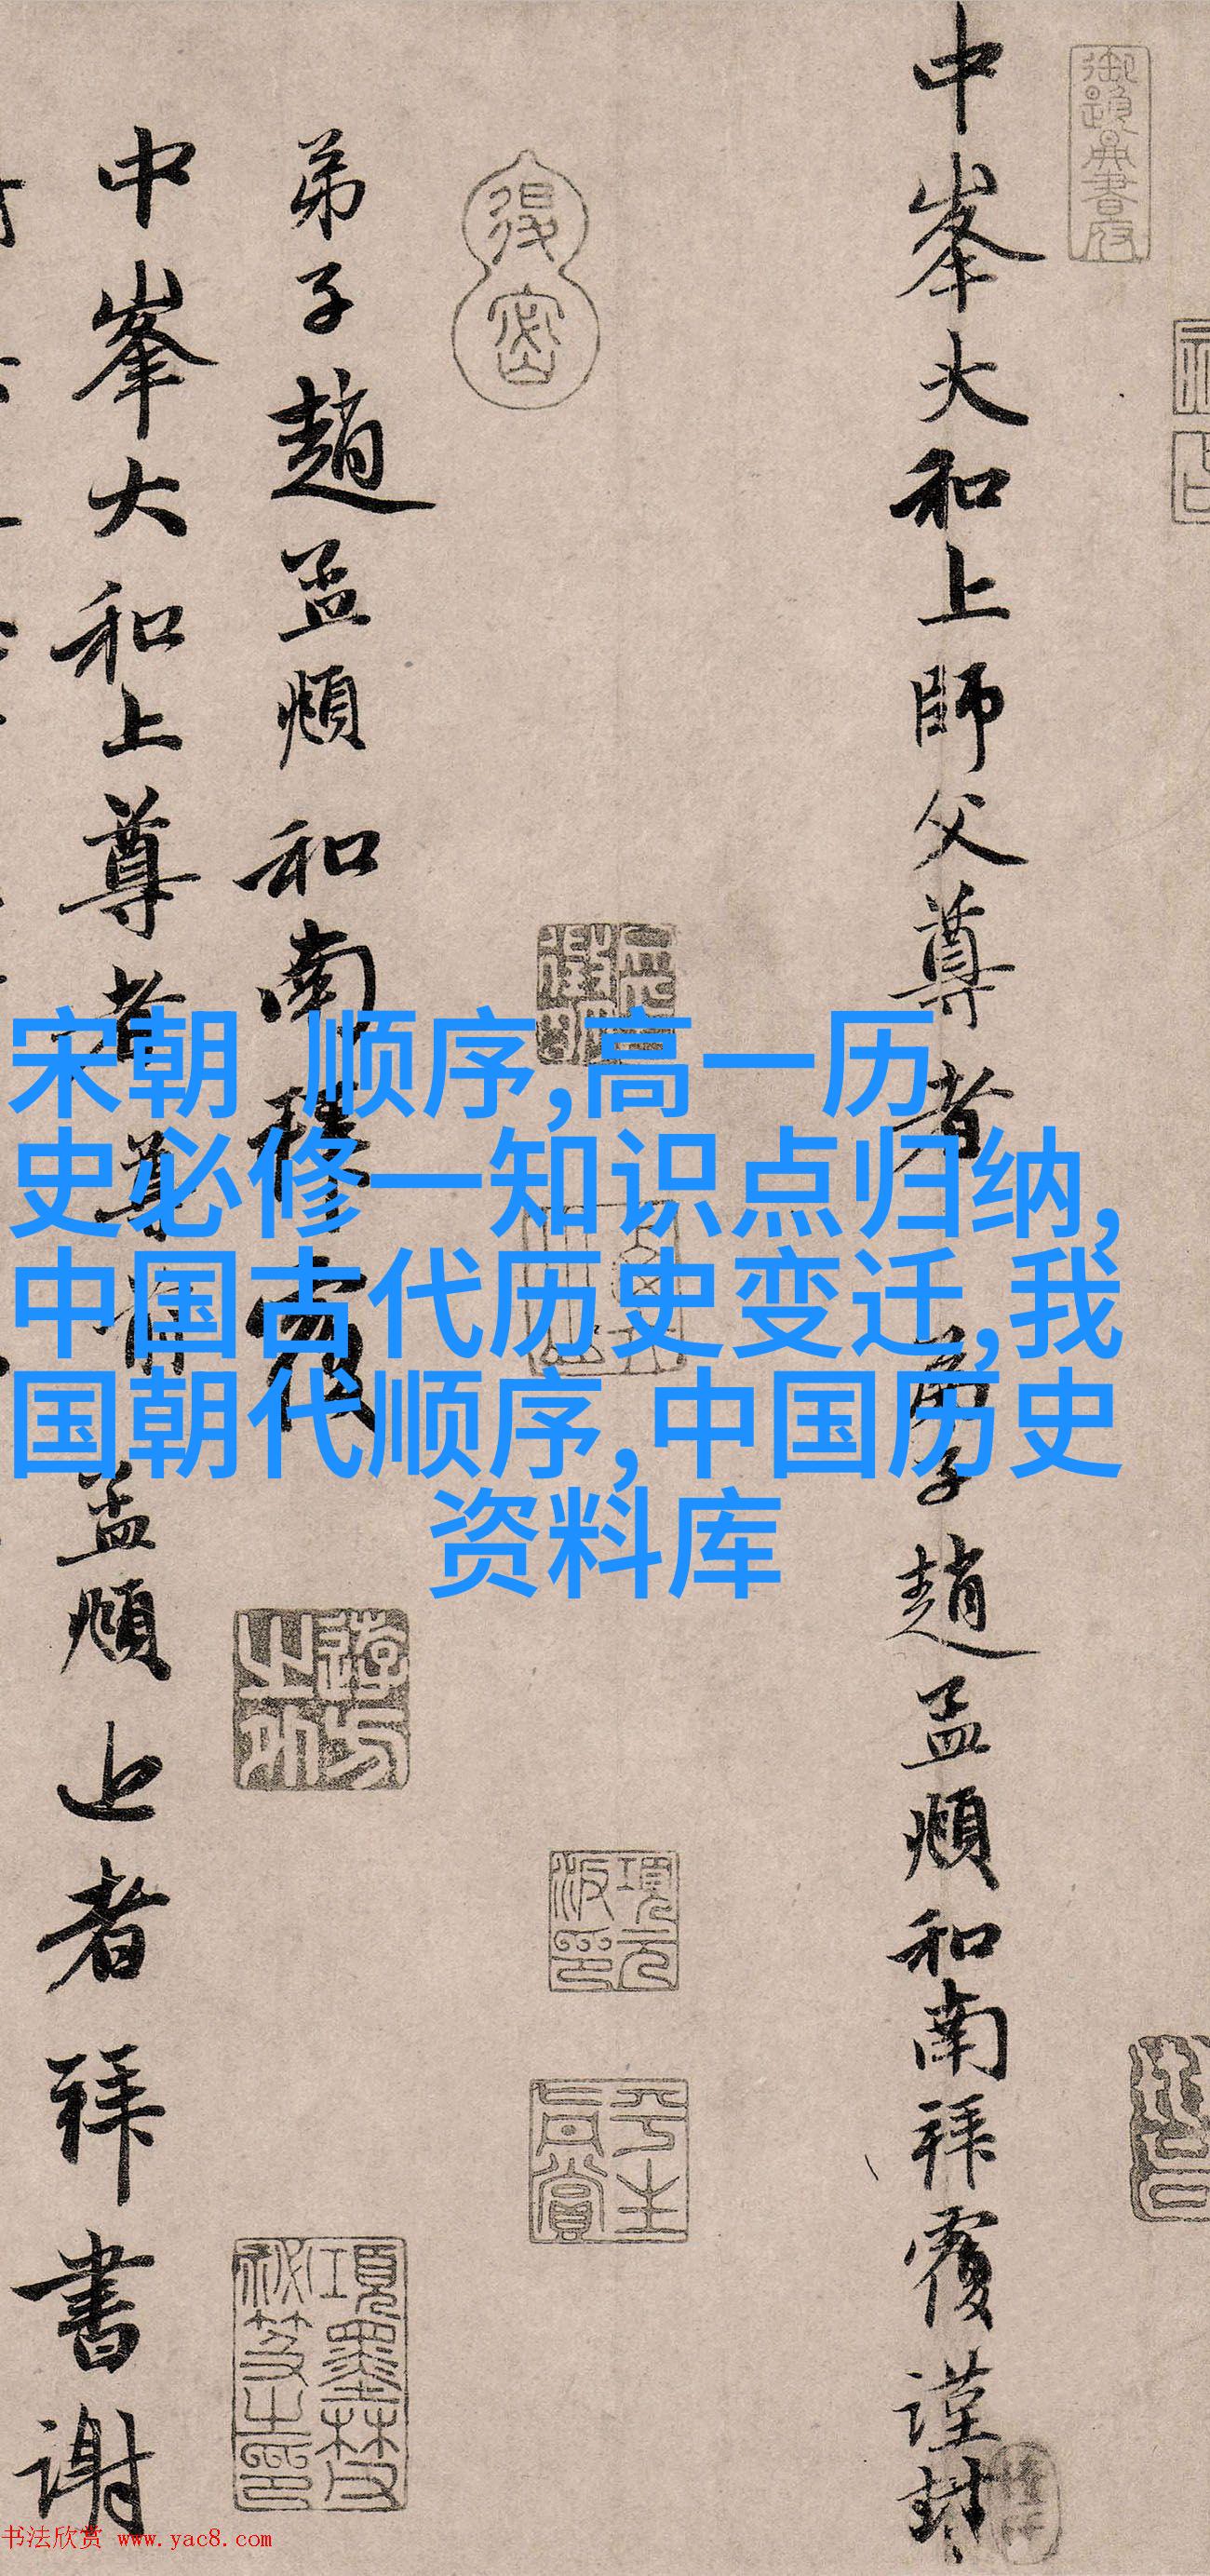 中峯大和上師父尊者
弟子趙孟頫和南拜覆謹封
弟子趙孟頫和南拜覆
中峯大和上尊者尊前
孟頫上者拜書謝
宋朝 顺序,高一历
史必修一知识点归纳,
中国古代历史变迁,我
国朝代顺序,中国历史
资料库
御題
書府
項元
平生
真賞
項墨林
之印
书法欣赏 www.yac8.com